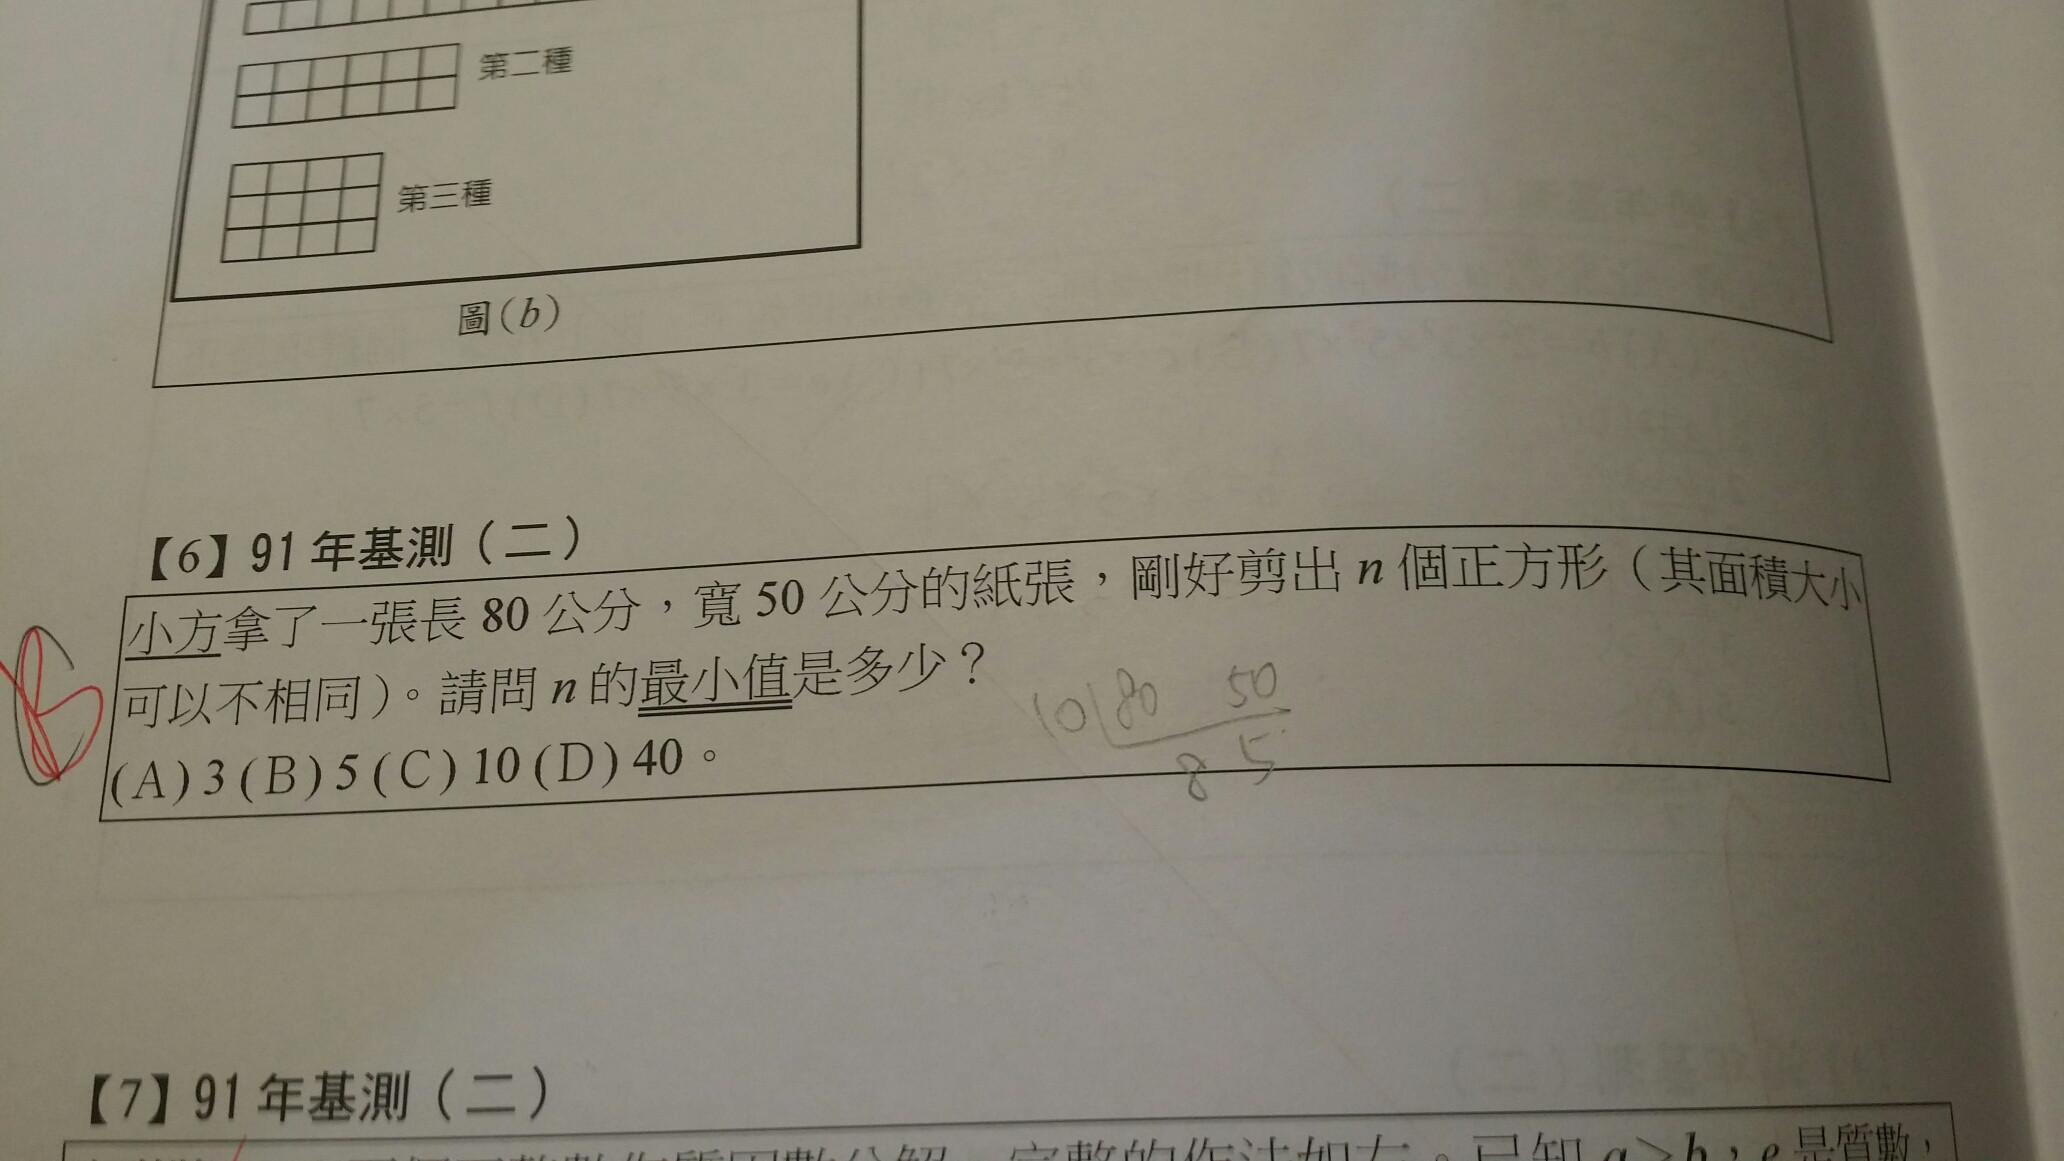 第二種
第三種
圖(b)
【6】91年基測(二)
小方拿了一張長80公分,寬50公分的紙張,剛好剪出n個正方形(其面積大小
可以不相同)。請問n的最小值是多少?
10 80 50
8 5
(A)3(B)5(C)10(D)40。
B
【7】91年基測(二)
已知a>b,e是質數,